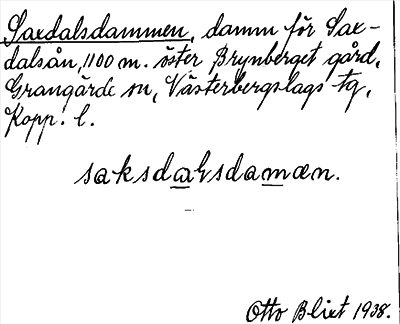 Saxdalsdammen, damm för Sax-
dalsån, 1100 m. öster Brynberget gård,
Grangärde sn, Västerbergslags tg,
Kopp. l.
saksdaɽsdamæn.
Otto Blixt 1938.